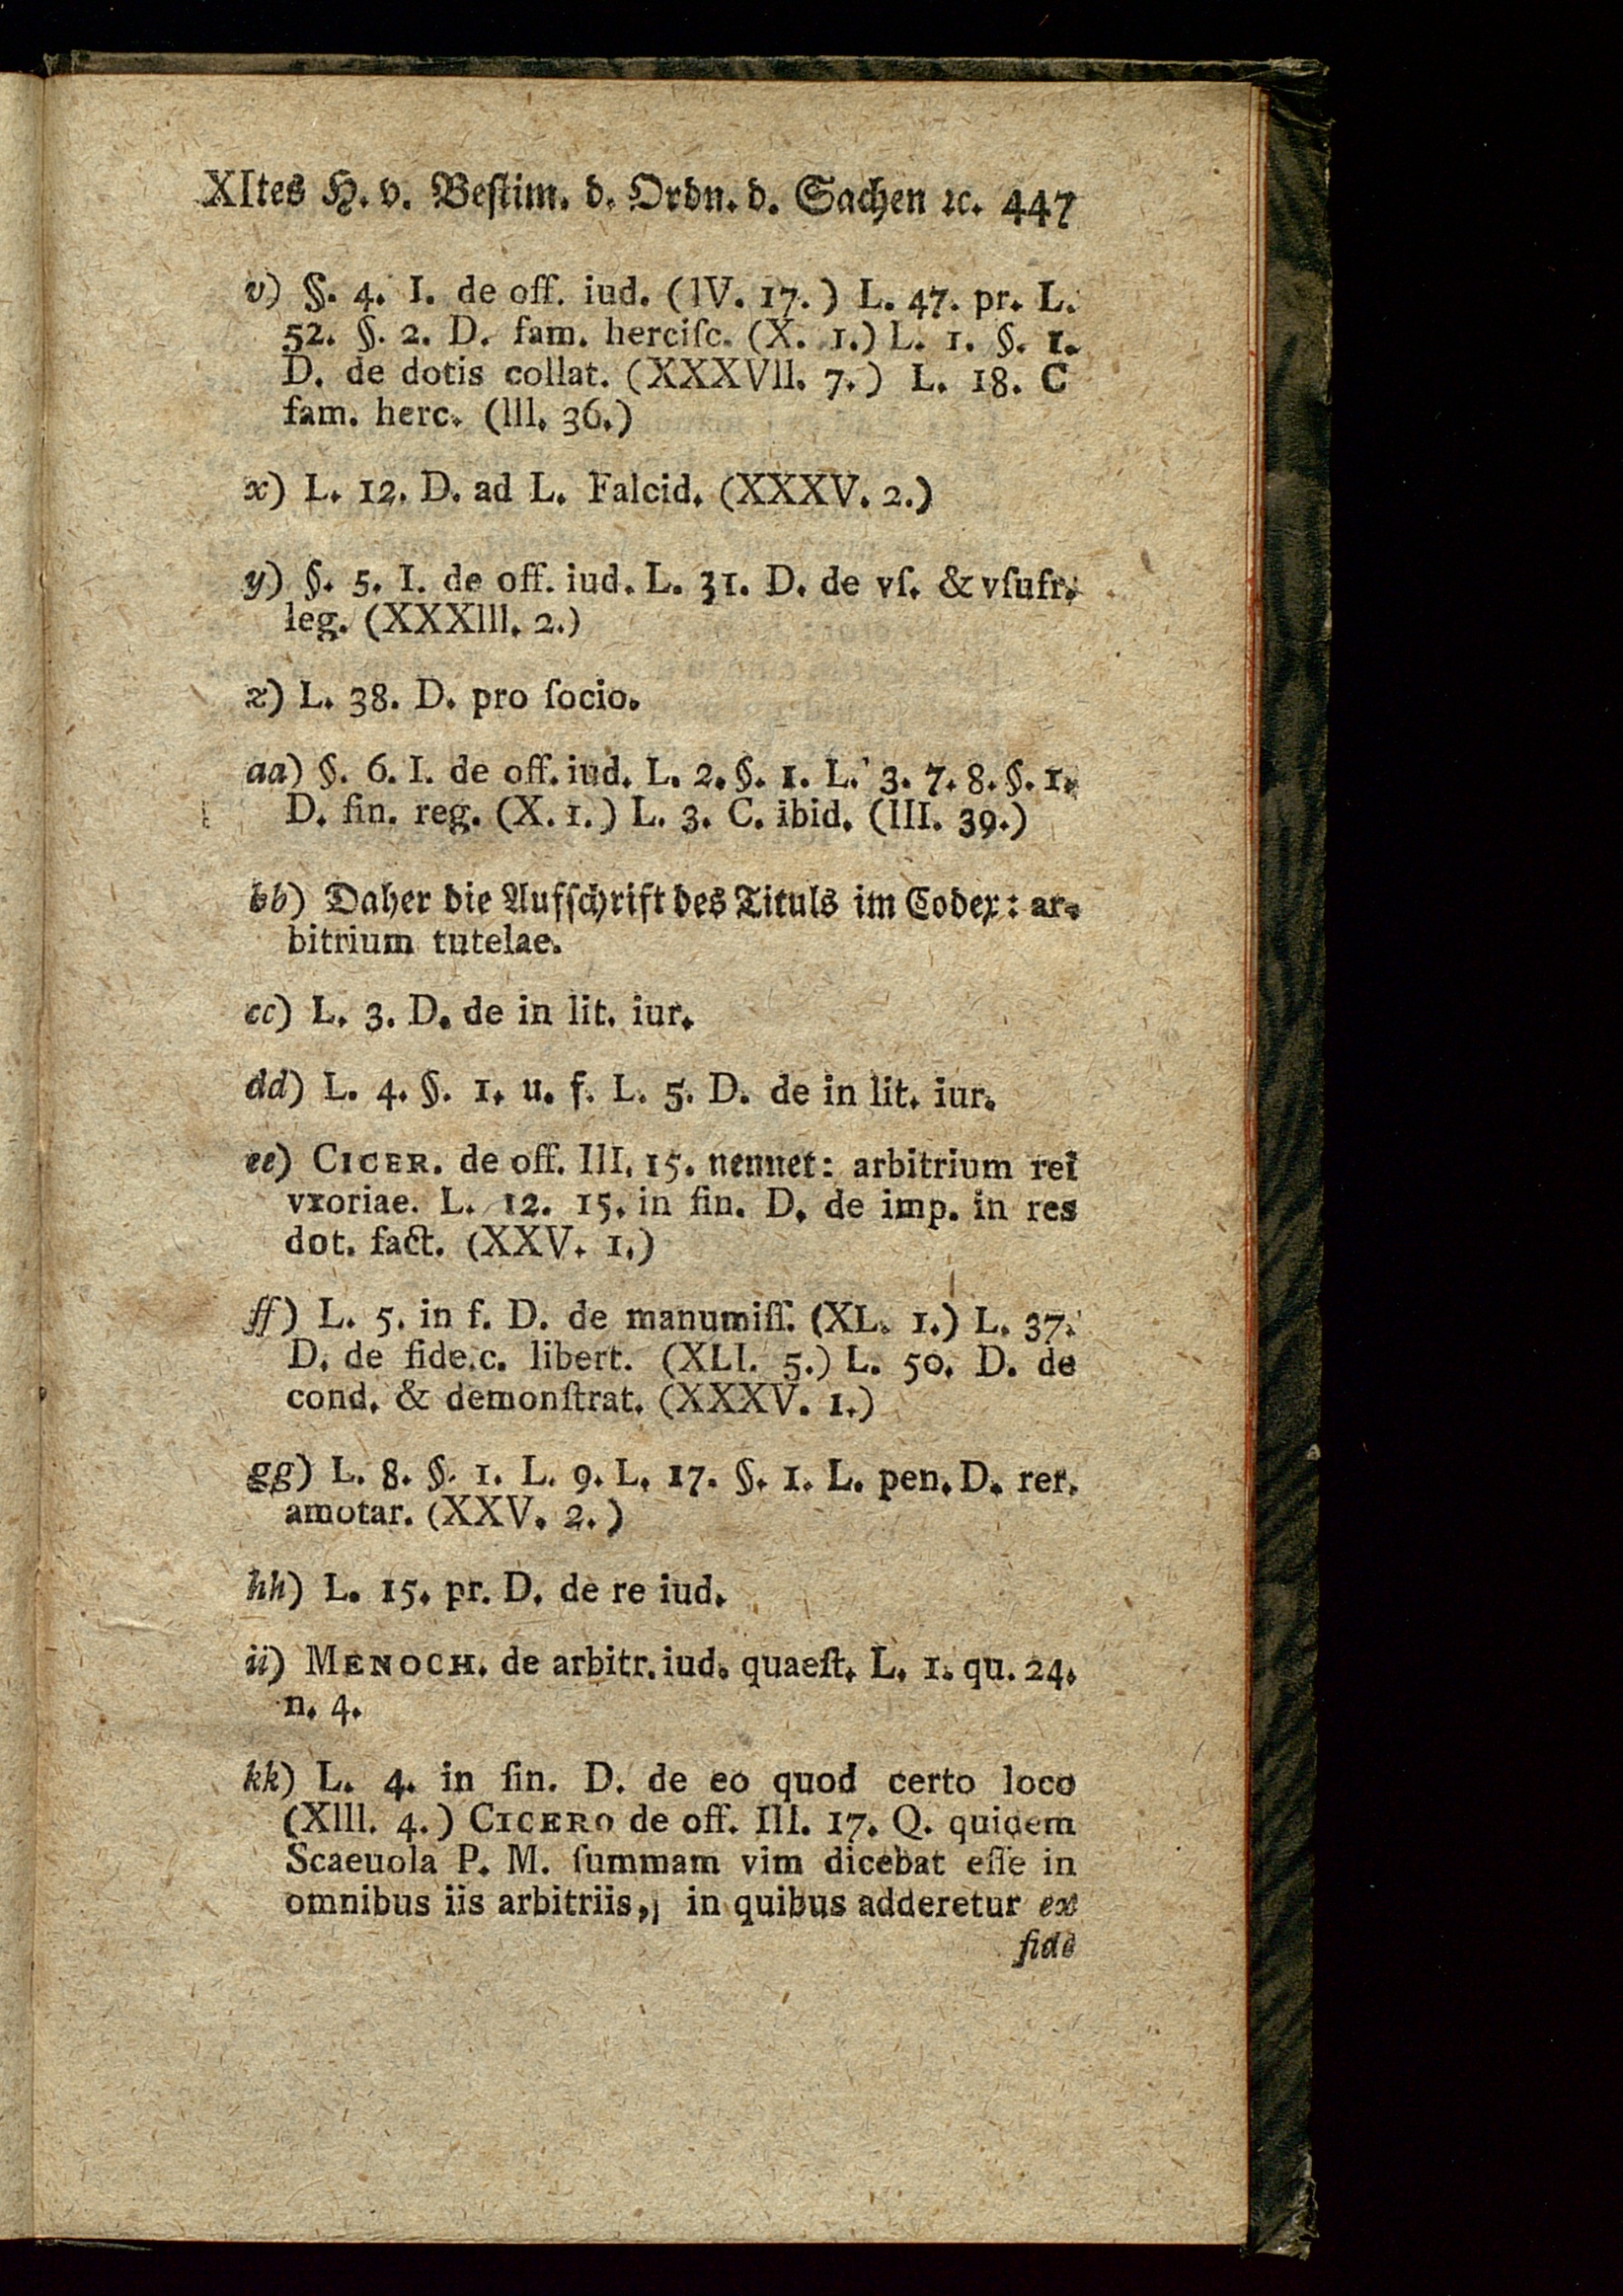 XItes H. v. Bestim. d. Ordn. d. Sachen ꝛc. 447
v) §. 4. I. de off. iud. (IV. 17.) L. 47. pr. L.
52. §. 2. D. fam. herciſc. (X. 1.) L. 1. §. 1.
D. de dotis collat. (XXXVII. 7.) L. 18. C
fam. herc. (III. 36.)
x) L. 12. D. ad L. Falcid. (XXXV. 2.)
y) §. 5. I. de off. iud. L. 31. D. de vſ. & vſufr.
leg. (XXXIII. 2.)
z) L. 38. D. pro ſocio.
aa) §. 6. I. de off. iud. L. 2. §. 1. L. 3. 7. 8. §. 1.
D. fin. reg. (X. 1.) L. 3. C. ibid. (III. 39.)
bb) Daher die Aufſchrift des Tituls im Codex: ar-
bitrium tutelae.
cc) L. 3. D. de in lit. iur.
dd) L. 4. §. 1. u. f. L. 5. D. de in lit. iur.
ee) CICER. de off. III. 15. nennet: arbitrium rei
vxoriae. L. 12. 15. in fin. D. de imp. in res
dot. fact. (XXV. 1.)
ff) L. 5. in f. D. de manumiſſ. (XL. 1.) L. 37.
D. de fide.c. libert. (XLI. 5.) L. 50. D. de
cond. & demonſtrat. (XXXV. 1.)
gg) L. 8. §. 1. L. 9. L. 17. §. 1. L. pen. D. rer.
amotar. (XXV. 2.)
hh) L. 15. pr. D. de re iud.
ii) MENOCH. de arbitr. iud. quaeſt. L. 1. qu. 24.
n. 4.
kk) L. 4. in fin. D. de eo quod certo loco
(XIII. 4.) CICERO de off. III. 17. Q. quidem
Scaeuola P. M. ſummam vim dicebat eſſe in
omnibus iis arbitriis, in quibus adderetur ex
fide